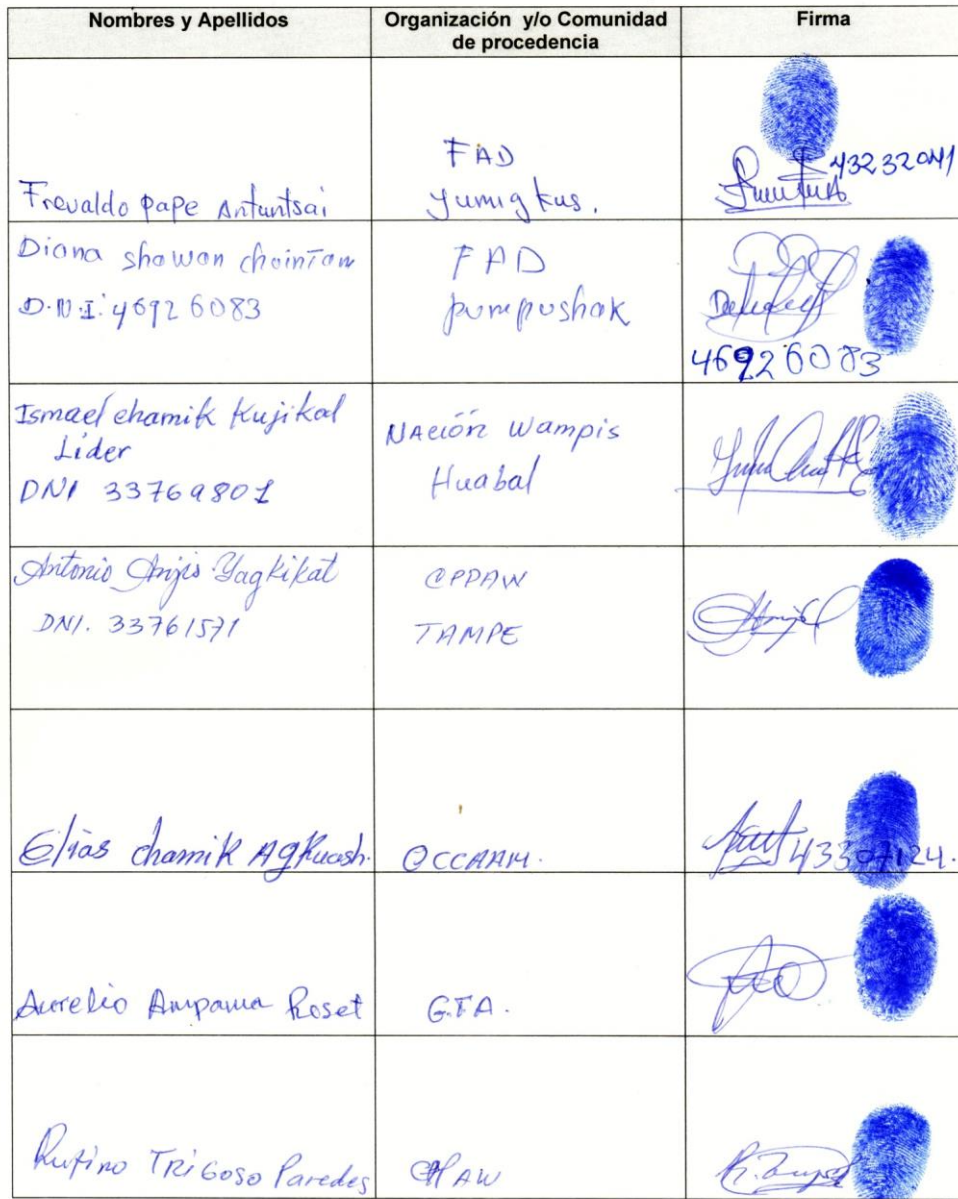 Nombres y Apellidos
Organización y/o Comunidad
de procedencia
Firma
Frevaldo pape Antuntsai
FAD
Yumigkus.
43232041
Diana shawan chointam
D.N.I: 46926083
FAD
pumpushak
46926083
Ismael chamik Kujikal
Líder
DNI 33769801
NAción Wampis
Huabal
Antonio Anjis Yagkikat
DNI. 33761571
OPPAW
TAMPE
Elias chamik Agkuash.
OCCAAM.
43307124.
Aurelio Ampama Roset
G.T.A.
Rufino TRiGoso Paredes